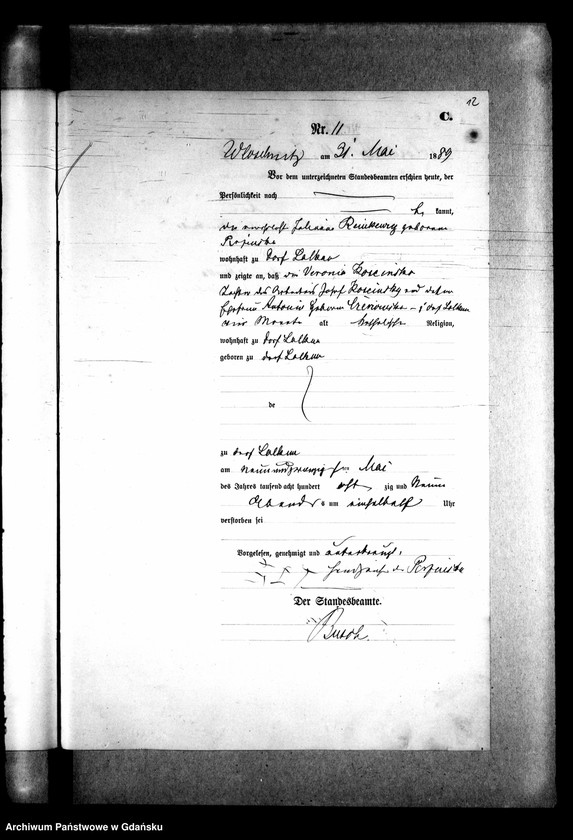 12
C.
Nr. 11
am 31 Mai 1889
Vor dem unterzeichneten Standesbeamten erschien heute, der
Persönlichkeit nach
kannt,
geborene
wohnhaft zu Dorf Lalkau
und zeigte an, daß die Veronia Koscinska
Tochter des Arbeiters Josef Koscinsky und dessen
Ehefrau Antonie geborene
alt katholischer Religion,
wohnhaft zu Dorf Lalkau
geboren zu Dorf Lalkau
de
zu Dorf Lalkau
am neunundzwanzigsten Mai
des Jahres tausend acht hundert acht zig und neun
Abends um Uhr
verstorben sei
Vorgelesen, genehmigt und unterkreuzt.
+ + + Handzeichen der
Der Standesbeamte.
Busch
Archiwum Państwowe w Gdańsku